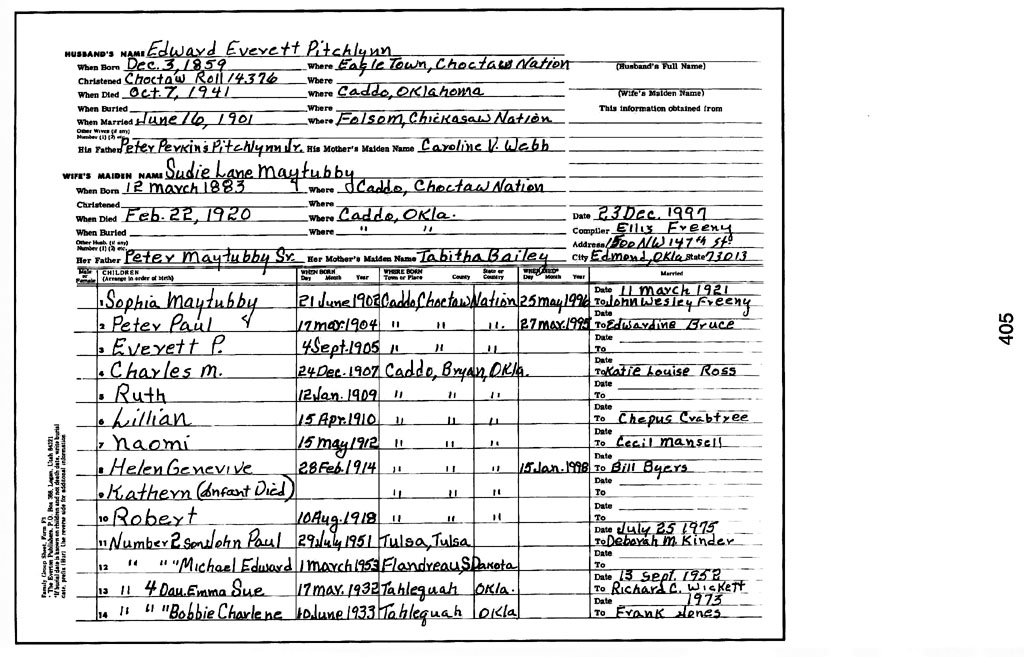 HUSBAND'S NAME Edward Everett Pitchlynn
When Born Dec. 3, 1859 Where Eagle Town, Choctaw Nation (Husband's Full Name)
Christened Choctaw Roll 14376 Where
When Died Oct. 7, 1941 Where Caddo, Oklahoma (Wife's Maiden Name)
When Buried Where This information obtained from
When Married June 16, 1901 Where Folsom, Chickasaw Nation
Other Wives (if any)
Number (1) (2) etc.
His Father Peter Perkins Pitchlynn Jr. His Mother's Maiden Name Caroline V. Webb
WIFE'S MAIDEN NAME Sudie Lane Maytubby
When Born 12 March 1883 Where Caddo, Choctaw Nation
Christened Where
When Died Feb. 22, 1920 Where Caddo, Okla. Date 23 Dec. 1997
When Buried Where " " Compiler Ellis Freeny
Other Husb. (if any)
Number (1) (2) etc. Address 1500 NW 147th St.
Her Father Peter Maytubby Sr. Her Mother's Maiden Name Tabitha Bailey City Edmond, Okla State 73013
Male or Female CHILDREN (Arrange in order of birth) WHEN BORN Day Month Year WHERE BORN Town or Place County State or Country WHEN DIED* Day Month Year Married
1 Sophia Maytubby 21 June 1902 Caddo, Choctaw Nation 25 May 1996 Date 11 March 1921 To John Wesley Freeny
2 Peter Paul 17 Mar. 1904 " " ". 27 Mar. 1995 Date To Edwardine Bruce
3 Everett P. 4 Sept. 1905 " " " Date To
4 Charles M. 24 Dec. 1907 Caddo, Bryan, Okla. Date To Katie Louise Ross
5 Ruth 12 Jan. 1909 " " " Date To
6 Lillian 15 Apr. 1910 " " " Date To Chepus Crabtree
7 Naomi 15 May 1912 " " " Date To Cecil Mansell
8 Helen Genevive 28 Feb. 1914 " " " 15 Jan. 1998 Date To Bill Byers
9 Kathern (Infant Died) " " " Date To
10 Robert 10 Aug. 1918 " " " Date To
11 Number 2 son John Paul 29 July 1951 Tulsa, Tulsa Date July 25 1975 To Deborah M. Kinder
12 " " " Michael Edward 1 March 1953 Flandreau, S Dakota Date To
13 11 4 Dau. Emma Sue 17 Mar. 1932 Tahlequah Okla. Date 13 Sept. 1952 To Richard C. Wickett
14 " " " Bobbie Charlene 10 June 1933 Tahlequah Okla Date 1973 To Frank Jones
Family Group Sheet, Form F1
The Everton Publishers, P.O. Box 368, Logan, Utah 84321
405